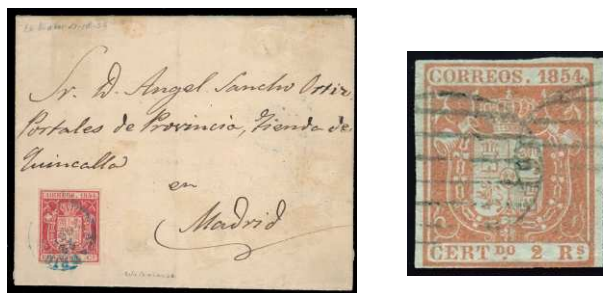 Sr. D. Angel Sancho Ortiz
Portales de Provincia, Tienda de
Quincalla
en
Madrid
CORREOS. 1854
CORREOS. 1854.
CERT.DO 2 RS